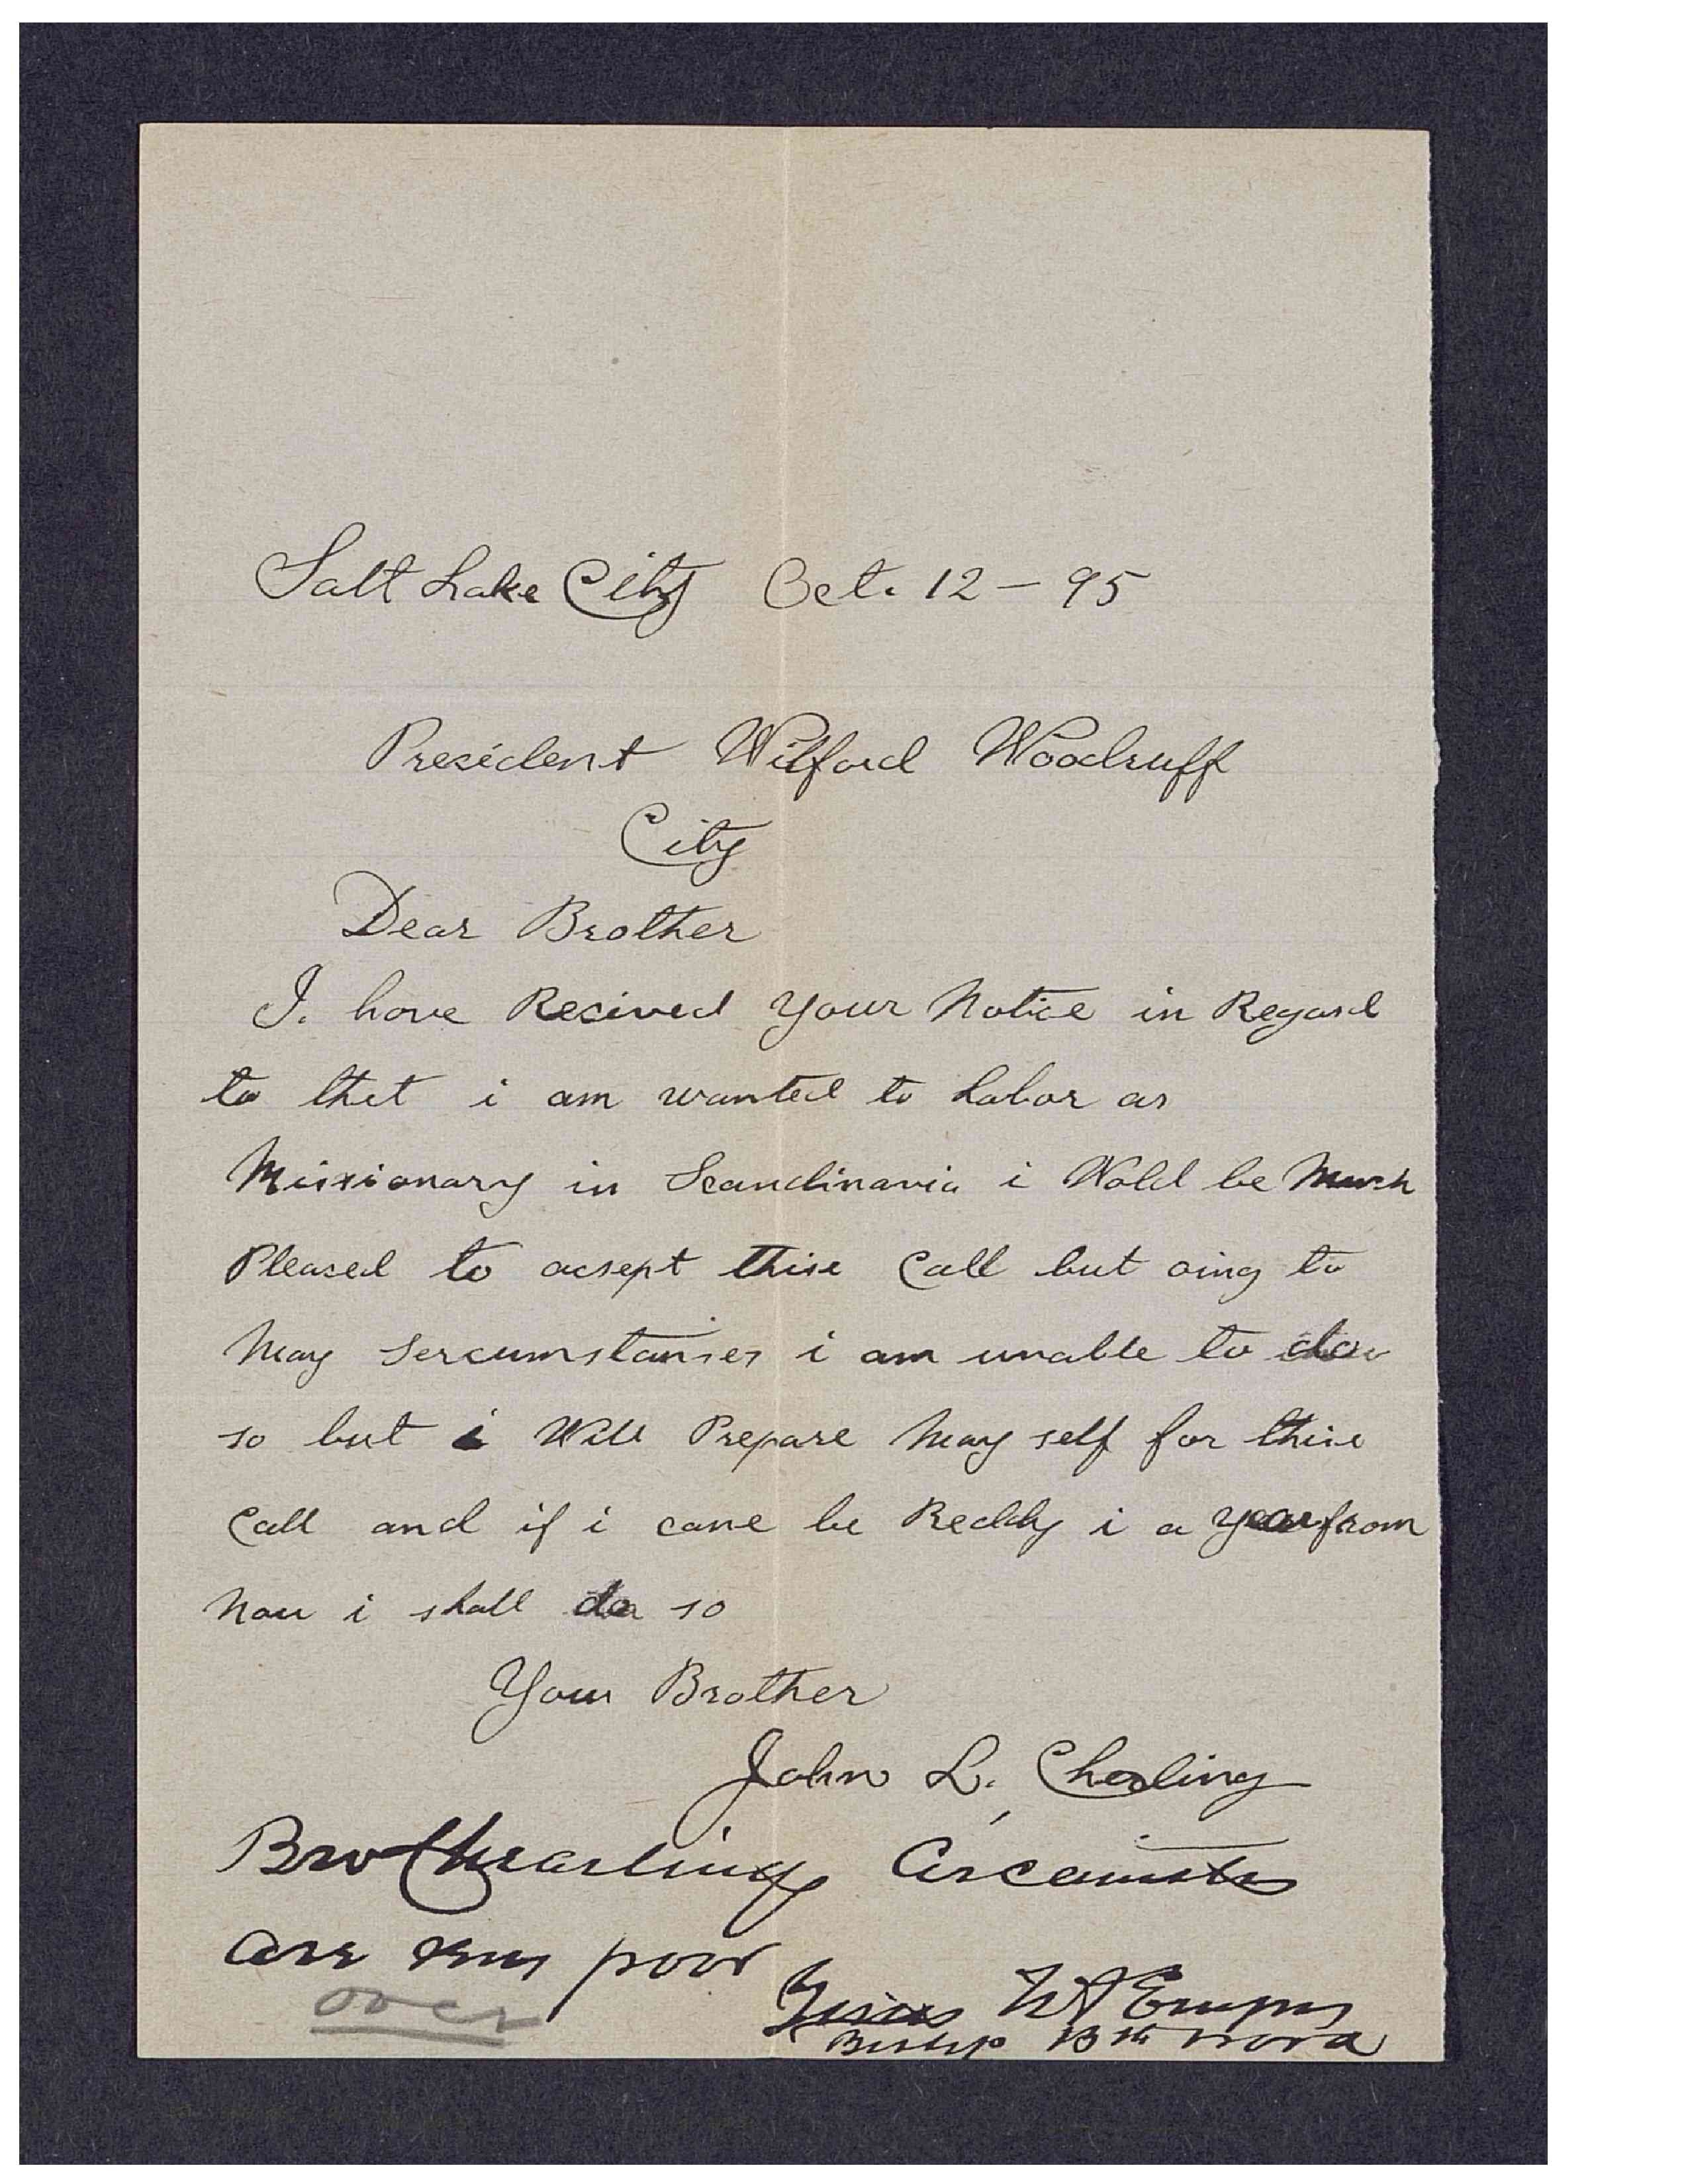 Salt Lake City Oct. 12 – 95
President Wilford Woodruff
City
Dear Brother
I. have Recived your Notice in Regard
to thet i am wanted to Labor as
Missionary in Scandinavia i Wold be Much
Pleased to acsept thise Call but oing to
May sercumstanses i am unable to do
so but i Will Prepare May self for thise
Call and if i cane be Reddy i a year from
Nou i shall do so
Your Brother
John L. Cherling
Bro
are very poor
over
Bishop 13th Ward